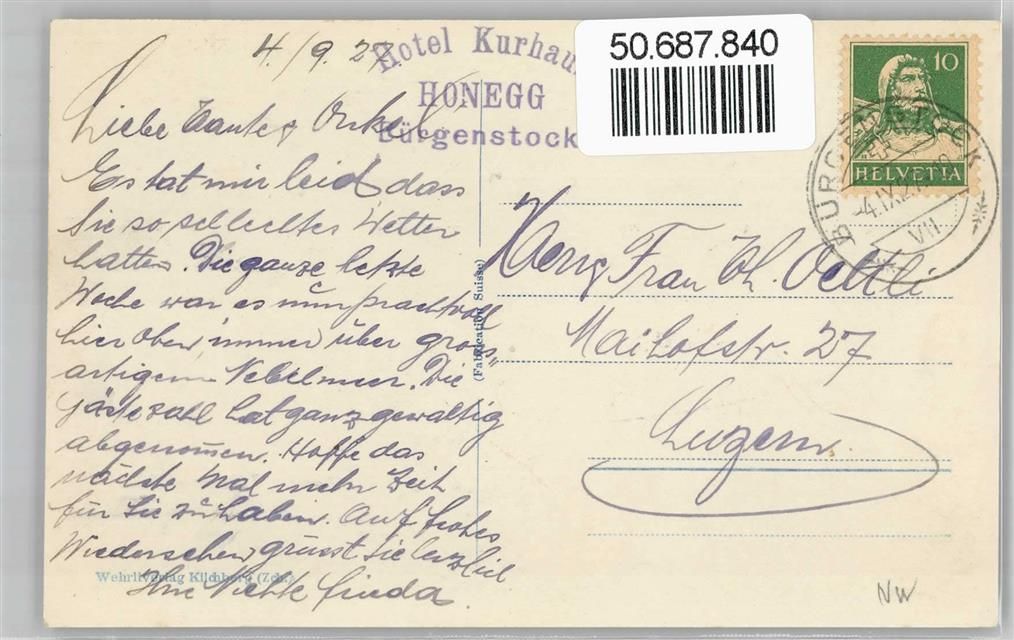 4./9. 27
Hotel Kurhau
HONEGG
Bürgenstock
50.687.840
10
HELVETIA
BÜRGENSTOCK
-4.IX.2
VII
Liebe Tante & Onkel!
Es tat mir leid dass
Sie so schlechtes Wetter
hatten. Die ganze letzte
Woche war es nun prachtvoll
hier oben, immer über gross-
artigem Nebelmeer. Die
Gästezahl hat ganz gewaltig
abgenommen. Hoffe das
nächste Mal mehr Zeit
für Sie zu haben. Auf frohes
Wiedersehen, grüsst Sie herzlich
Ihre Nichte Frieda.
(Fabrication Suisse)
Wehrliverlag Kilchberg (Zch.)
Herrn & Frau Th. Oettli
Maihofstr. 27
Luzern.
NW